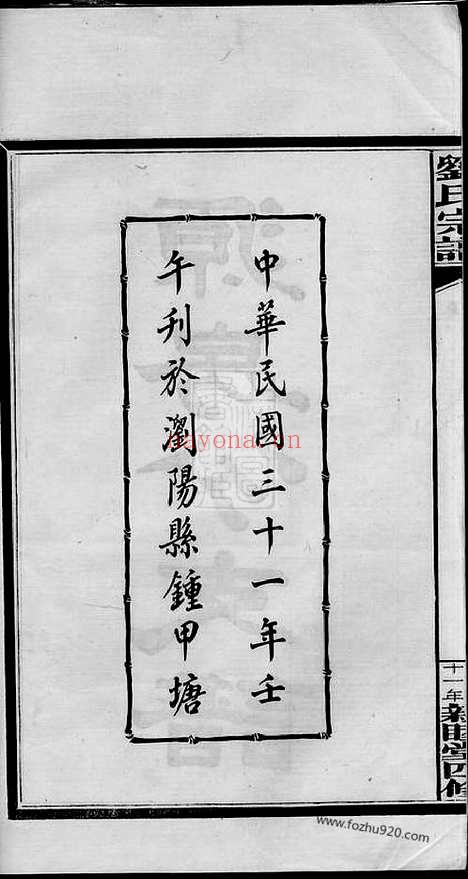 中華民國三十一年壬
午刊於瀏陽縣鍾甲塘
劉氏宗譜
十一年
親睦堂四修
nayona.cn
www.fozhu920.com